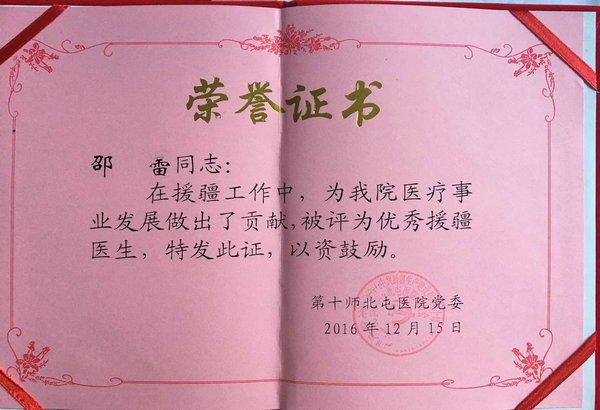 荣誉证书
邵 雷同志：
在援疆工作中，为我院医疗事
业发展做出了贡献，被评为优秀援疆
医生，特发此证，以资鼓励。
第十师北屯医院党委
2016年12月15日